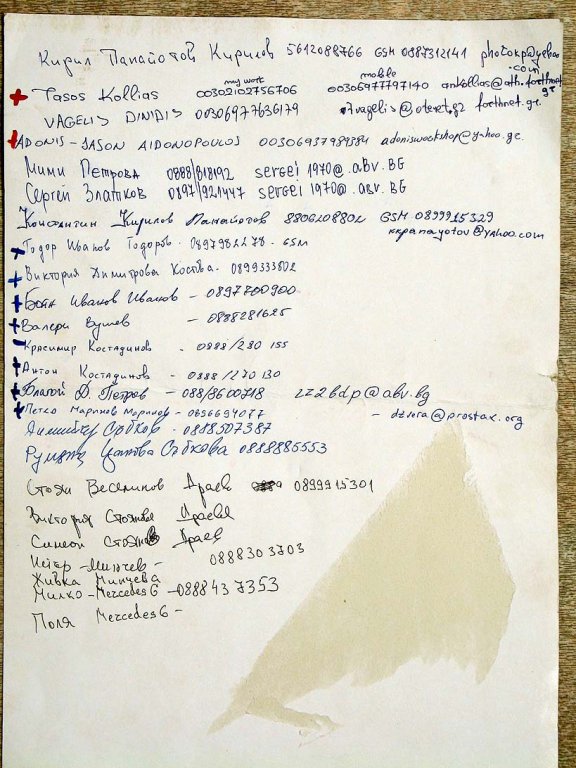 Кирил Панайотов Кирилов 5612088766 GSM 0887312141 photokp@yahoo.com
my work mobile
Tasos Kollias 00302102756706 00306977797140 ankollias@ath.forthnet.gr
VAGELIS DINIDIS 00306977636179 @otenet.gr forthnet.gr.
ADONIS-JASON AIDONOPOULOS 00306937984384 adonisworkshop@yahoo.gr
Мими Петрова 0888/818192 sergei 1970@.abv.BG
Сергей Златков 0897/921447 sergei 1970@.abv.BG
Константин Кирилов Панайотов 8806208802 GSM 0899915329
kkpanayotov@yahoo.com
Тодор Иванов Тодоров - GSM
Виктория Димитрова Костова - 0899333802
Боян Иванов Иванов - 0897700900
Валери Вушев - 0888281625
Красимир Костадинов - 0888/280 155
Антон Костадинов - 0888/270 130
Благой Д. Петров - 088/8600718 lz2bdp@abv.bg
Петко Маринов Маринов - 0896694077 - dzvera@prostak.org
Сербков - 0888507387
Румяна Събкова 0888885553
Стоян Веселинов Араев 0899915301
Виктория Стоянова Араева
Симеон Стоянов Араев
Петър Минчев - 0888303703
Живка Минчева
Милко - Mercedes G - 0888437353
Поля Mercedes G -